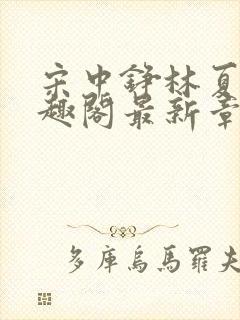 宋中錚林夏
趣閣最新章
多庫烏馬羅夫